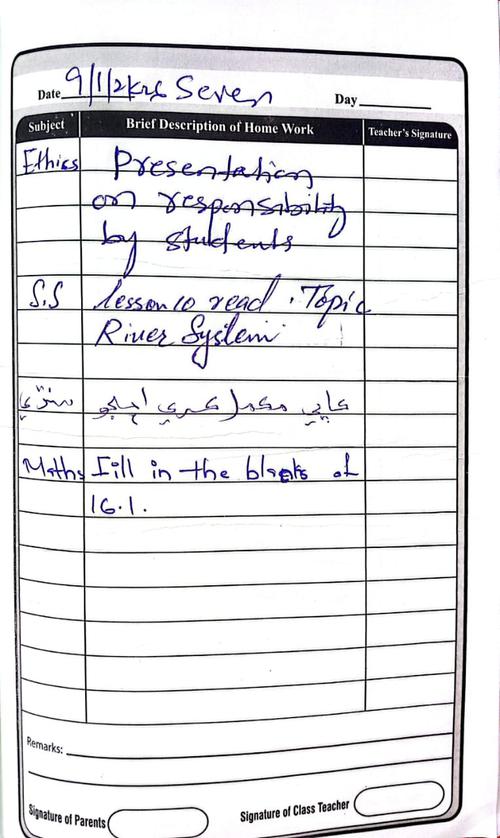 Date 9/1/2k26 Seven Day
Subject Brief Description of Home Work Teacher's Signature
Ethics Presentation
on responsibility
by students
S.S lesson 10 read . Topic
River System
سنڌي ڪاپي مڪمل ڪري اچجو
Maths Fill in the blanks of
16.1.
Remarks:
Signature of Parents Signature of Class Teacher